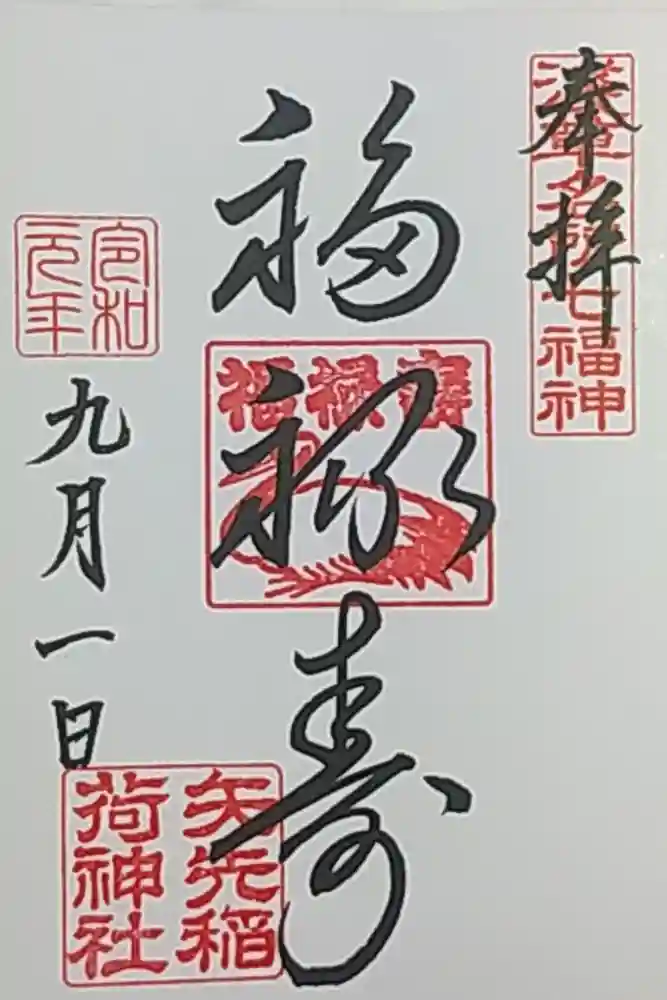 奉拝
浅草名所七福神
福禄寿
福禄寿
令和元年
九月一日
矢先稲荷神社